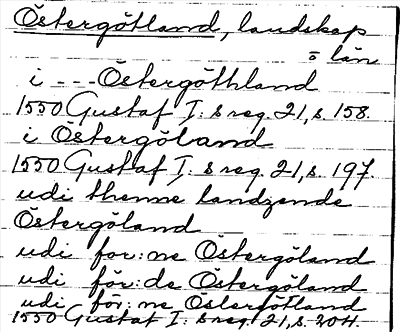 Östergötland, landskap
o län
i --- Östergöthland
1550 Gustaf I:s reg. 21, s. 158.
i Östergöland
1550 Gustaf I:s reg. 21, s. 197.
udi thenne landzende
Östergöland
udi for:ne Östergöland
udi för:de Östergöland
udi för:ne Östergötland
1550 Gustaf I:s reg. 21, s. 204.